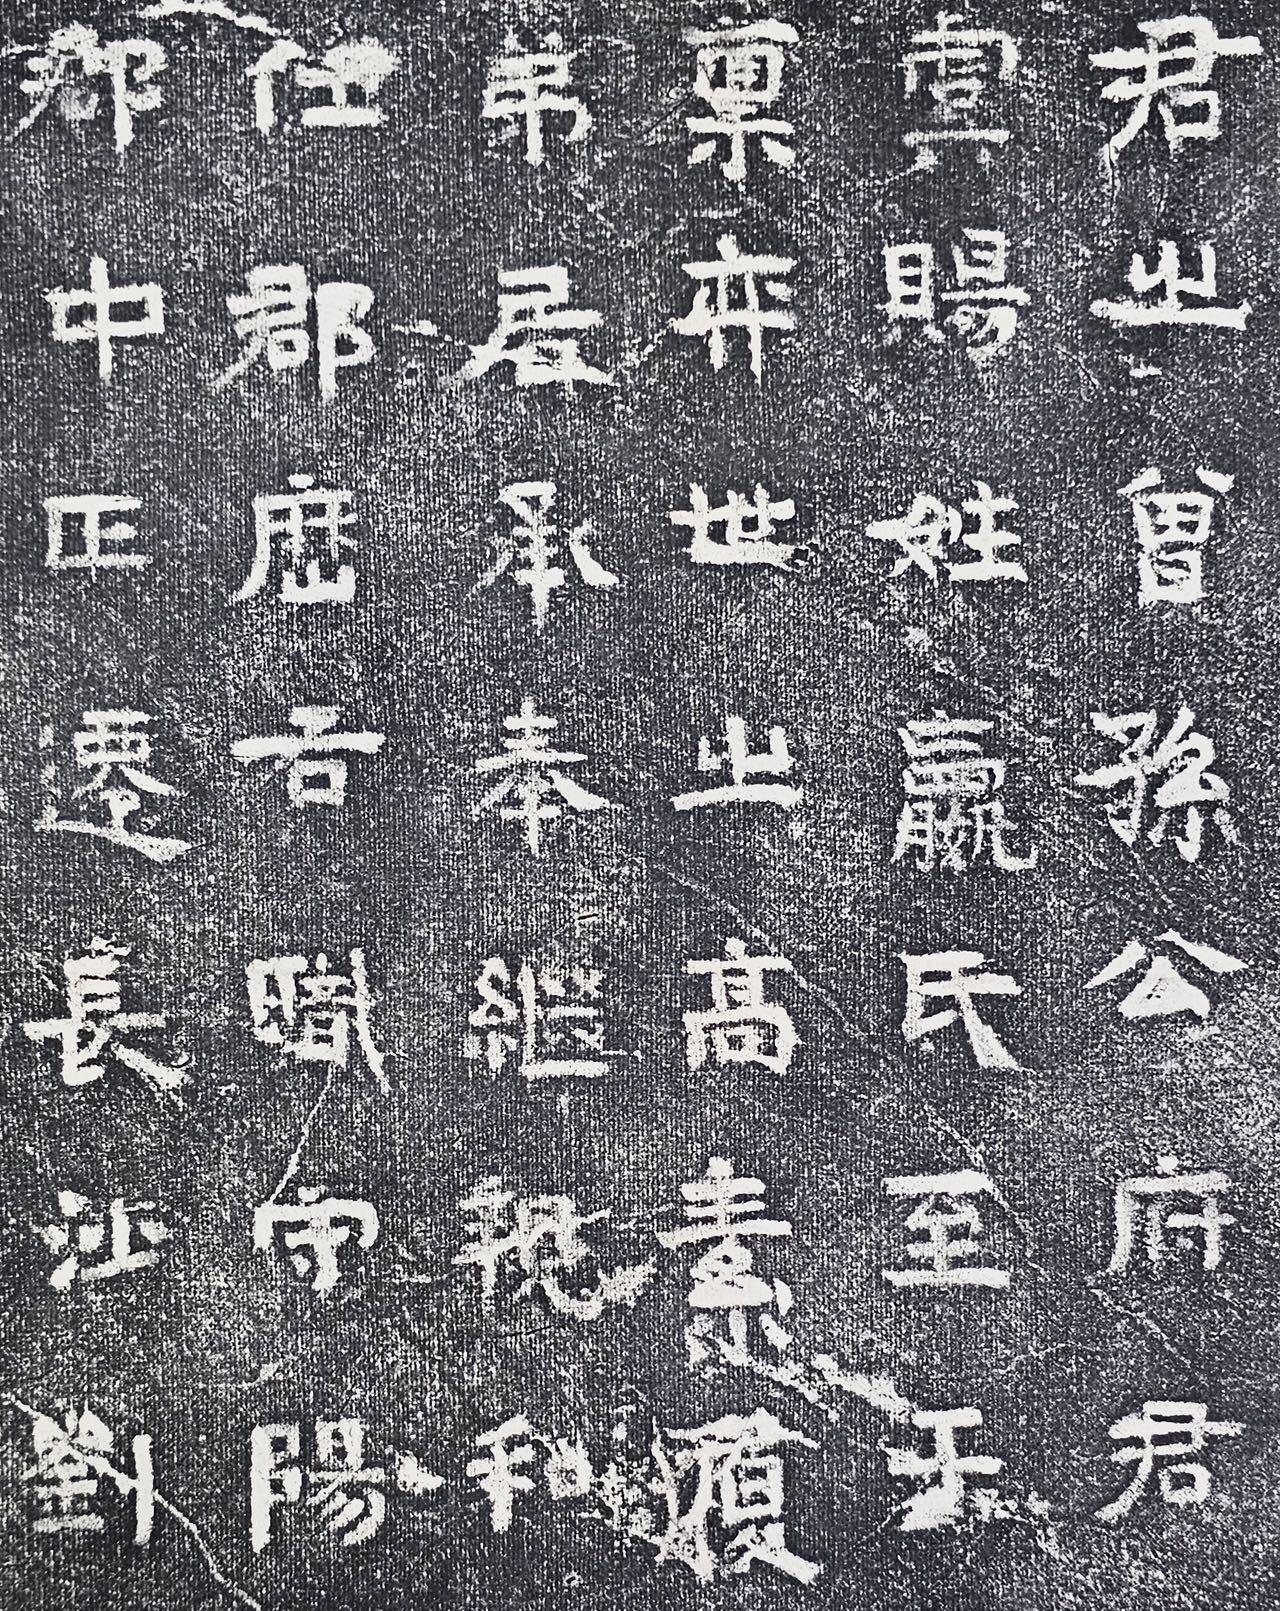 君之曾孫公府君
虞賜姓嬴氏至于
稟弈世之高素履
弟居承奉繼親和
仕郡歷右職守陽
郡中正遷長沙劉